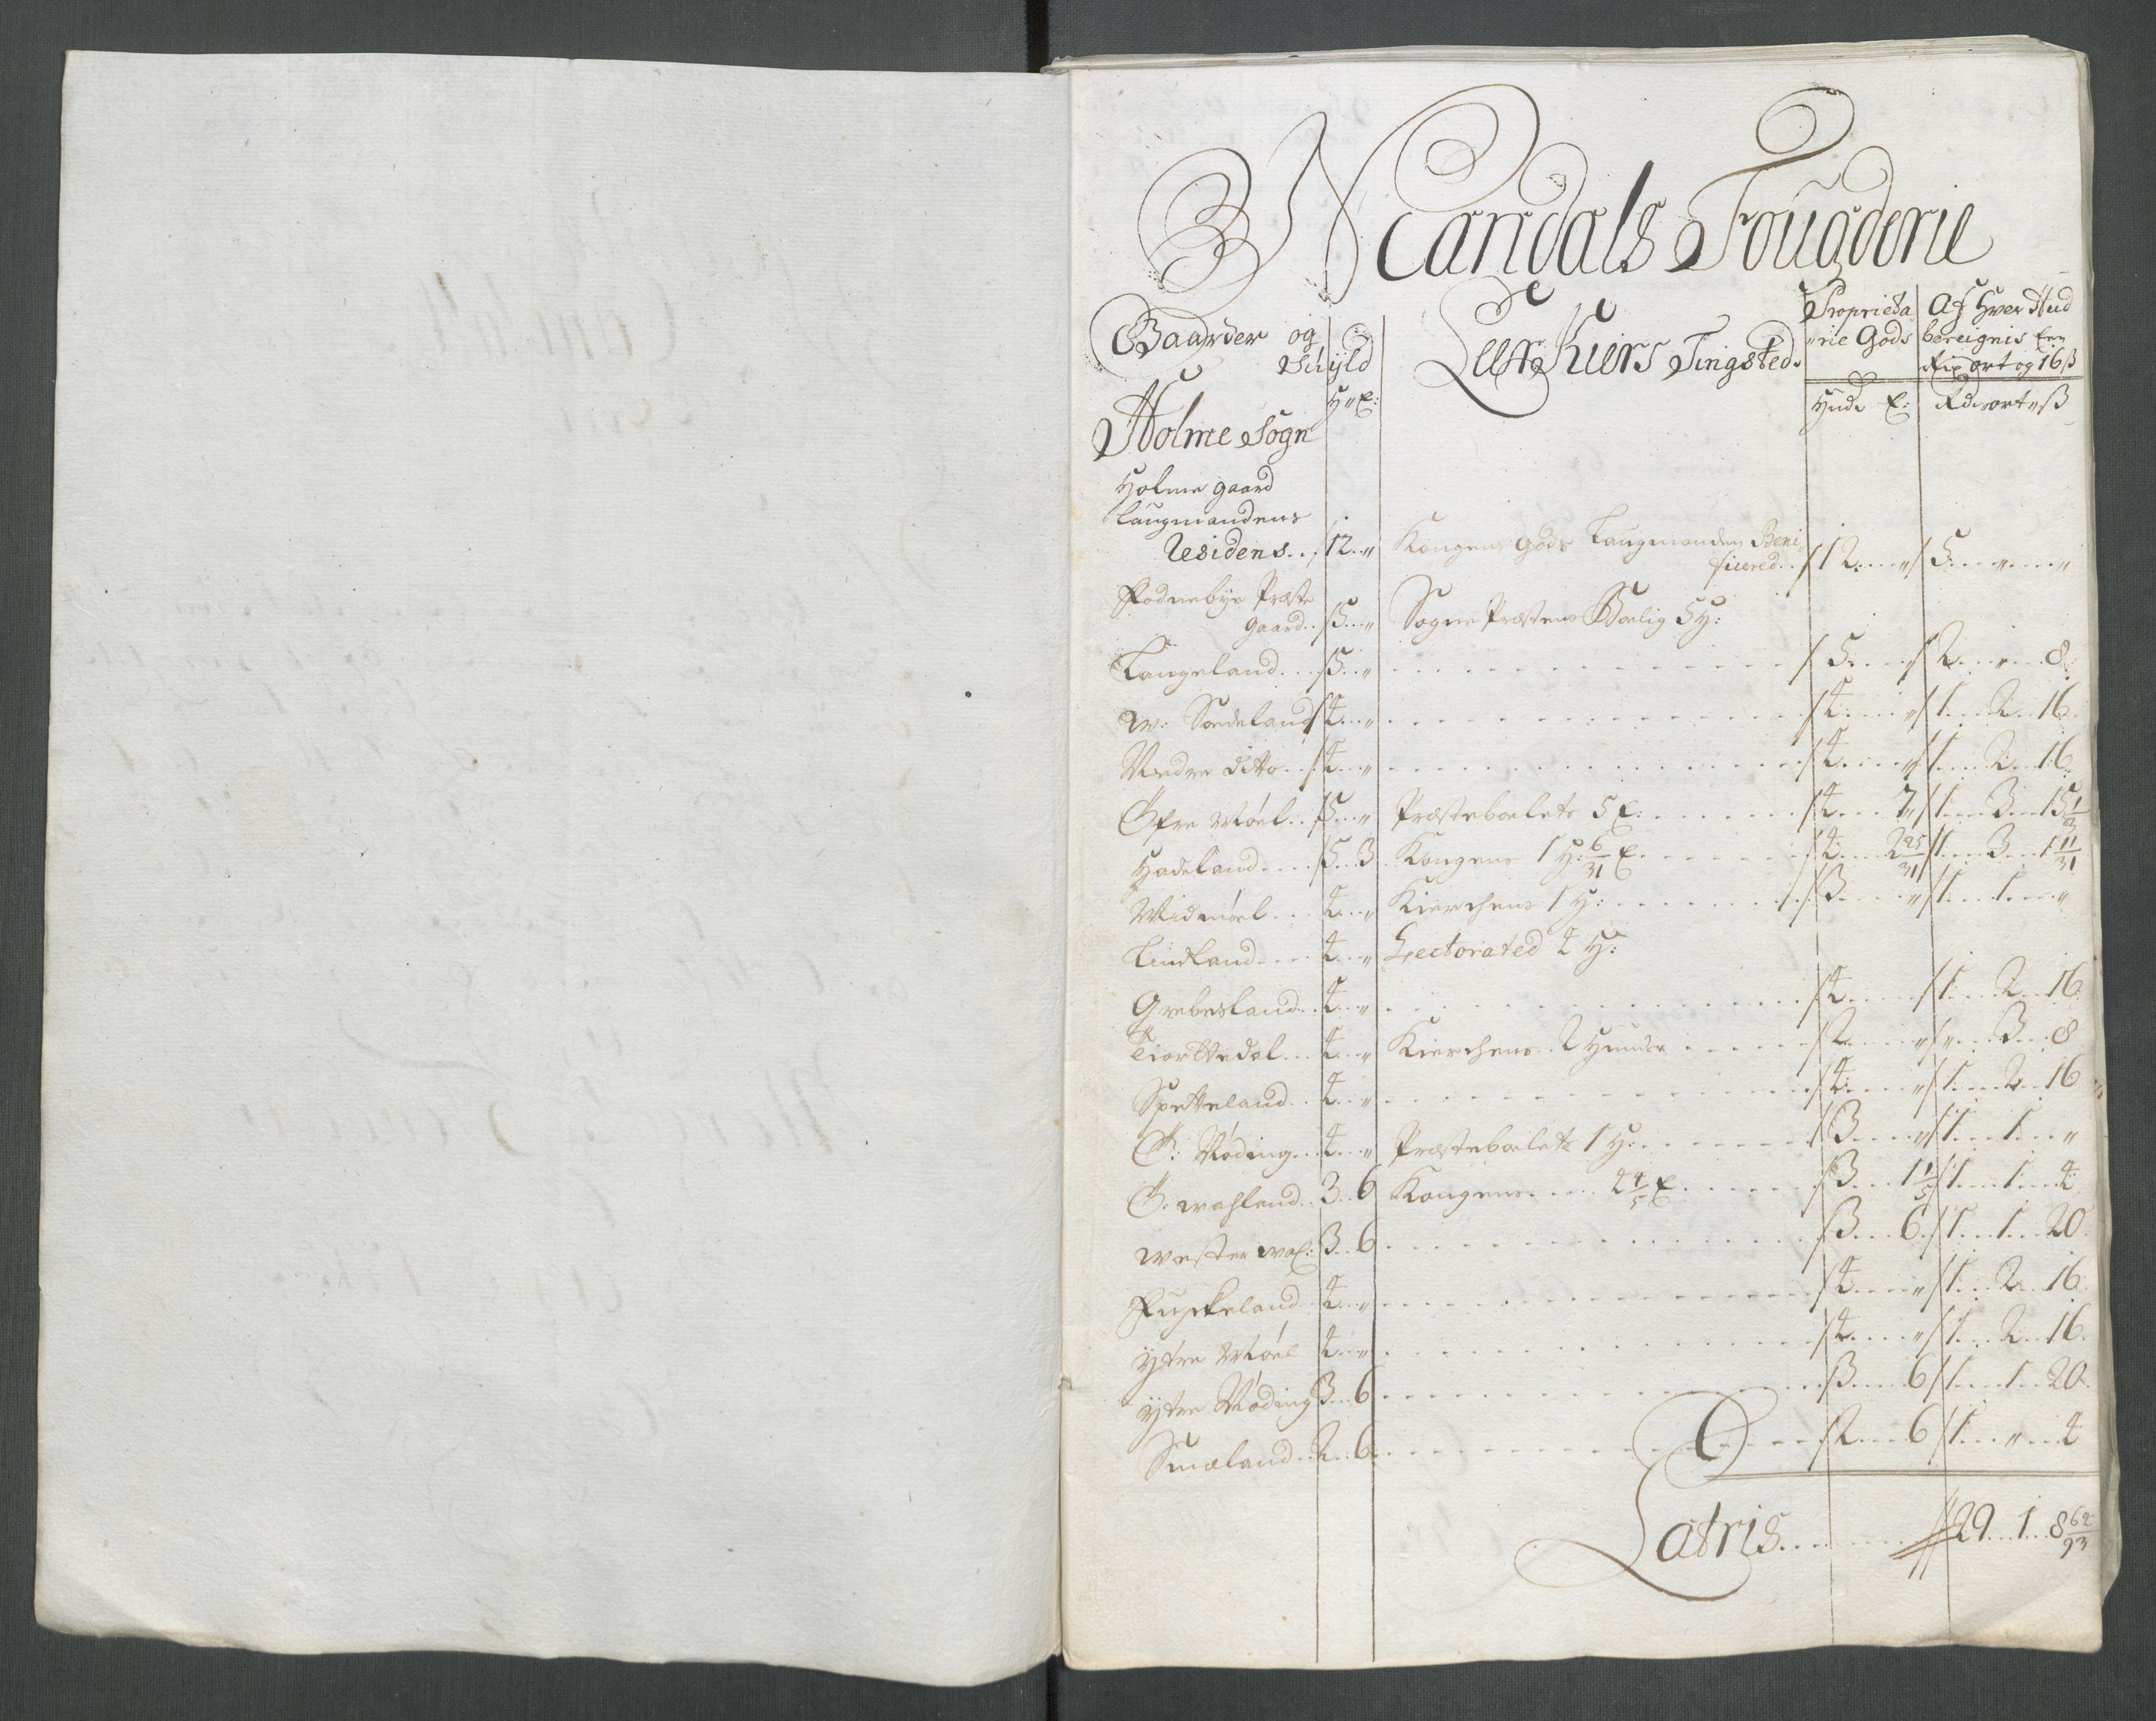 Mandals Fougderie
Gaarder og Skyld
H " E:
Leer Kiers Tingsted
Proprieta
rie Gods
Hude E:
Af Hver Hud
bereignis Een
Rix ort og 16 ß
Rdr ort " ß
Holme Sogn
Holme gaard
Laugmandens
Residens .. 12 .. " Kongens Gods Laugmanden Beni
ficered .. 12 .... " 5 .... " .... "
Fodnebye Præste
gaard .. 5 .. " Sogne Præstens Boelig 5 H:
Langeland ... 5 .. " 5 .... 2 .. " .. 8
w: Sædeland 4 .. " 4 .... " 1 .. 2 .. 16
Nedre ditto .. 4 .. " 4 .... " 1 .. 2 .. 16
Øfre Møel .. 5 .. " Præstebolets 5 E: 4 .. 7 " 1 .. 3 .. 15 1/3
Hadeland .... 5 .. 3 Kongens 1 H: 6/31 E 4 .. 2 25/31 1 .. 3 .. 1 11/31
Midmøel ... 4 .. " Kierchens 1 H: 3 .... " 1 .. 1 .. "
Lindland .... 4 .. " Lectorated 4 H:
Grebesland .. 4 .. " 4 .... 1 .. 2 .. 16
Tiortedal ... 4 .. " Kierchens .. 2 Huuder 2 .... " " .. 3 .. 8
Spetteland .. 4 .. " 4 .... " 1 .. 2 .. 16
Ø: Røding .. 4 .. " Præstebolets 1 H: 3 .... " 1 .. 1 .. "
Ø: wahland .. 3 .. 6 Kongens .... 4 4/5 E 3 .. 1 1/5 1 .. 1 .. 4
wester wal: 3 .. 6 3 .. 6 1 .. 1 .. 20
Fuskeland .. 4 .. " 4 .... " 1 .. 2 .. 16
ytre Møel 4 .. " 4 .... " 1 .. 2 .. 16
ytre Røding 3 .. 6 3 .. 6 1 .. 1 .. 20
Smaland .. 2 .. 6 2 .. 6 1 .. " .. 4
Latris ...... 29 .. 1 .. 8 64/93